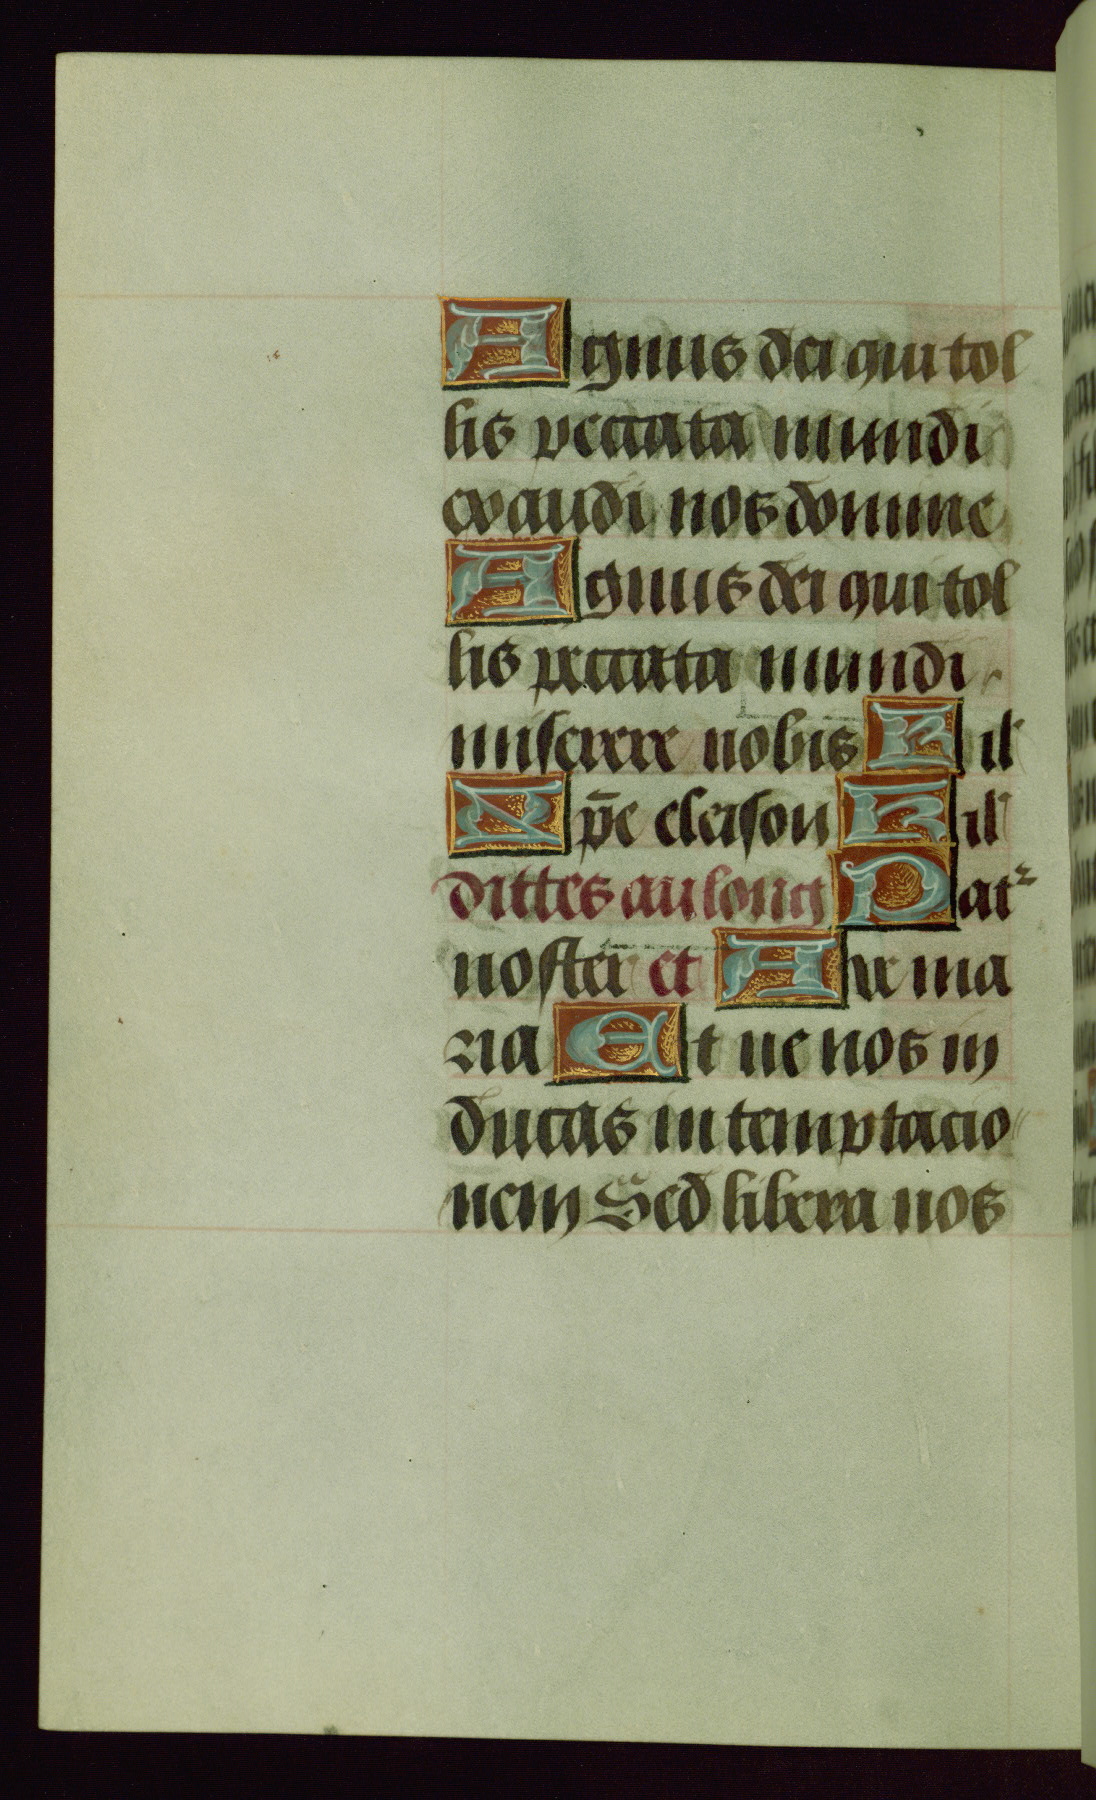 Agnus dei qui tol
lis peccata mundi
exaudi nos domine
Agnus dei qui tol
lis peccata mundi
miserere nobis Kil'
Xp̄e eleison Kil'
dittes au long Pat
noster et Ave ma
ria Et ne nos in
ducas in temptacio
nem Sed libera nos